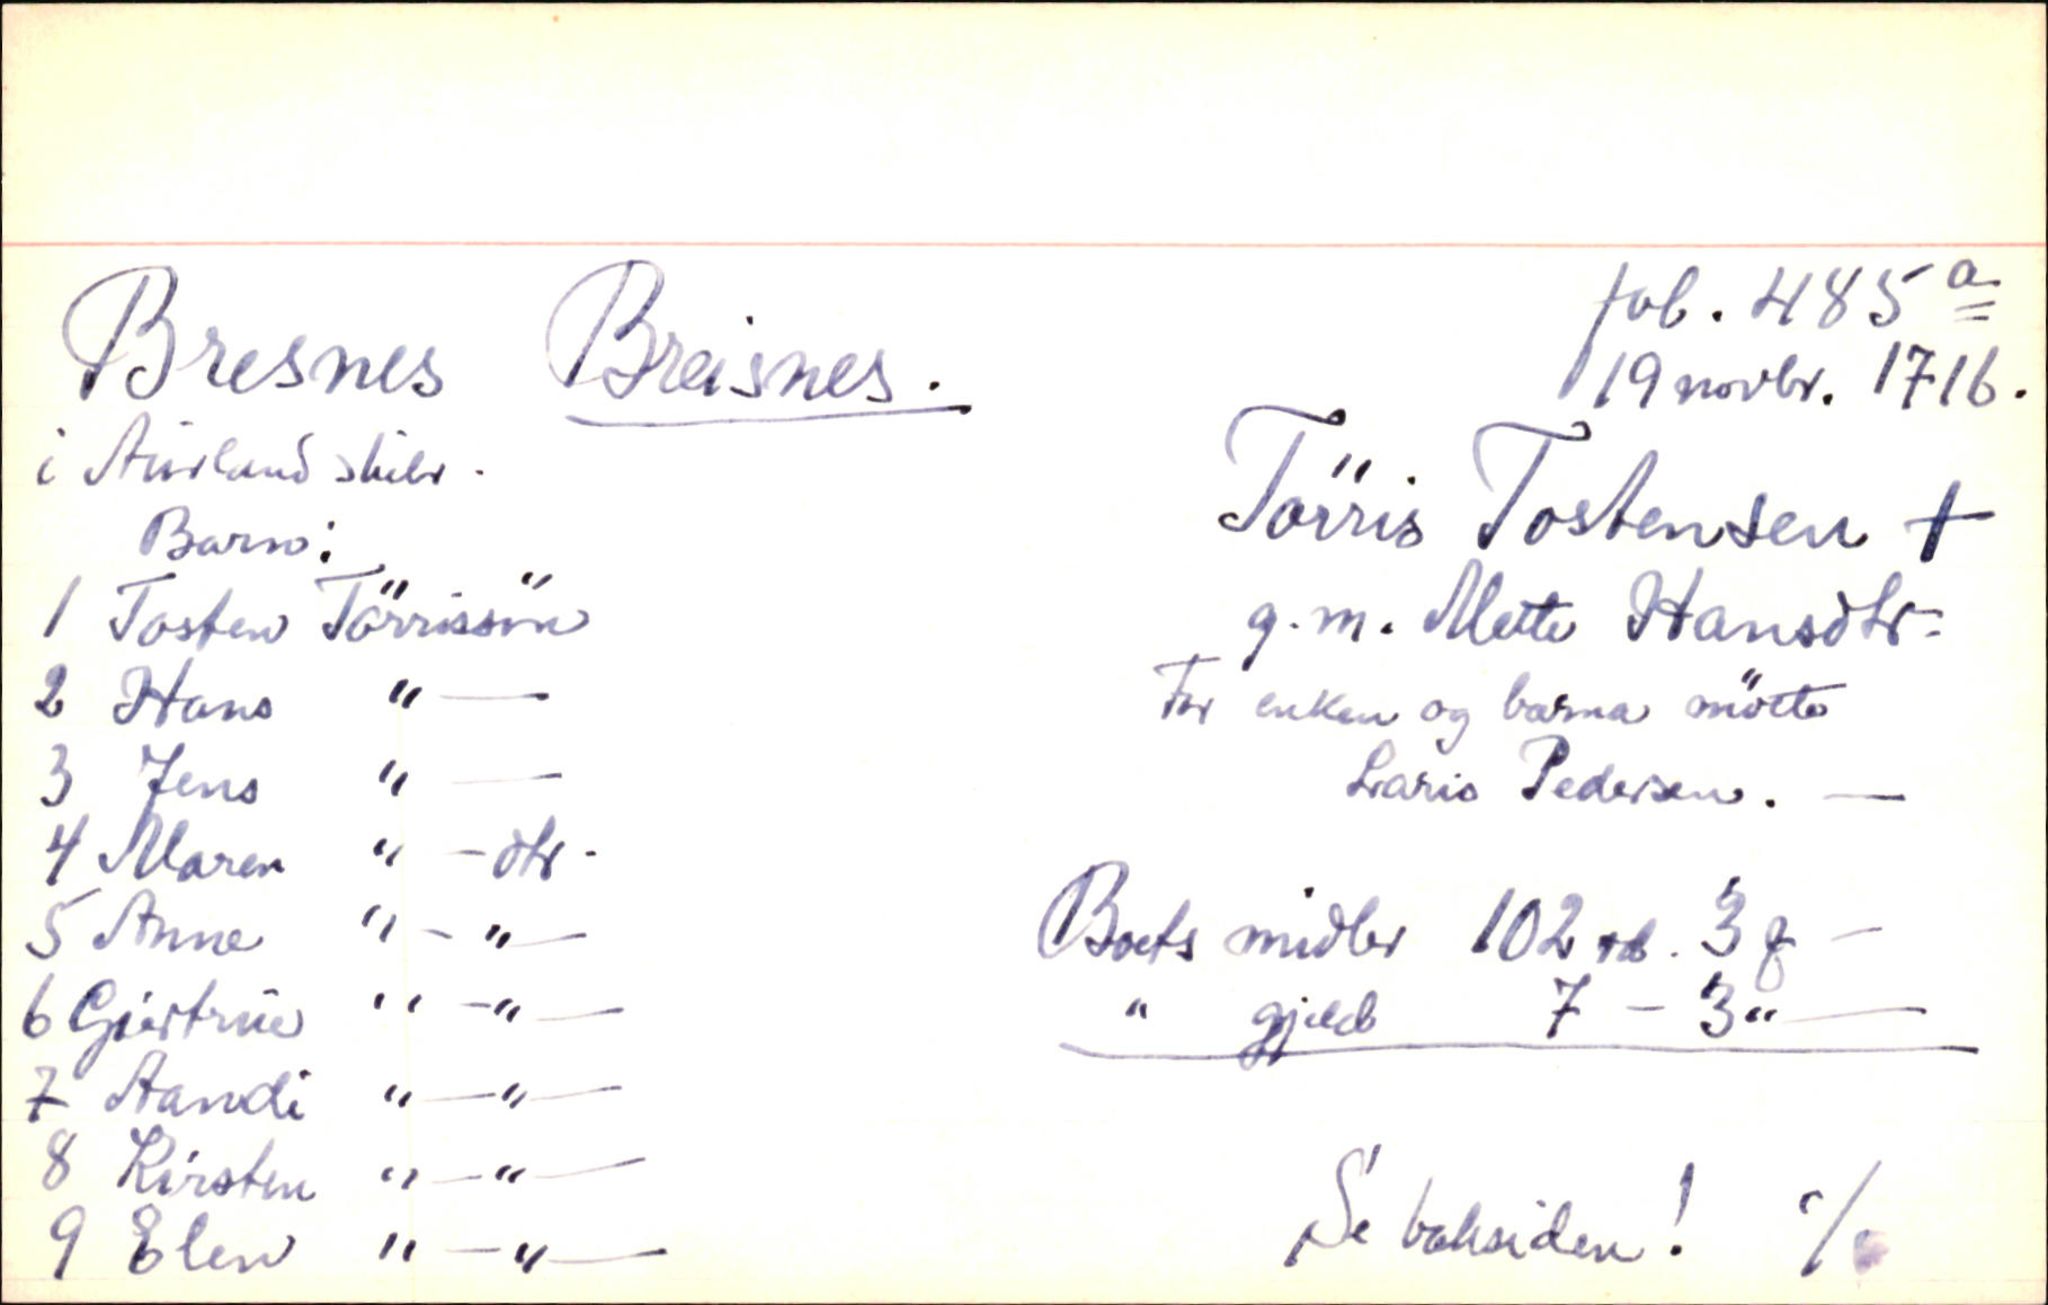 Bresnes Breisnes.
i Aurland skibr.
Barn:
1 Tosten Törrissön
2 Hans " —
3 Jens " —
4 Maren " — dtr.
5 Anne " — " —
6 Giertrue " — " —
7 Aandi " — " —
8 Kirsten " — " —
9 Elen " — " —
fol. 485 a
19 novbr. 1716.
Törris Tostensen +
g. m. Mette Hansdtr.
For enken og barna mötte
Laris Pedersen. —
Boets midler 102 rd. 3 —
" gjeld 7 — 3 " —
Se baksiden! ·/·